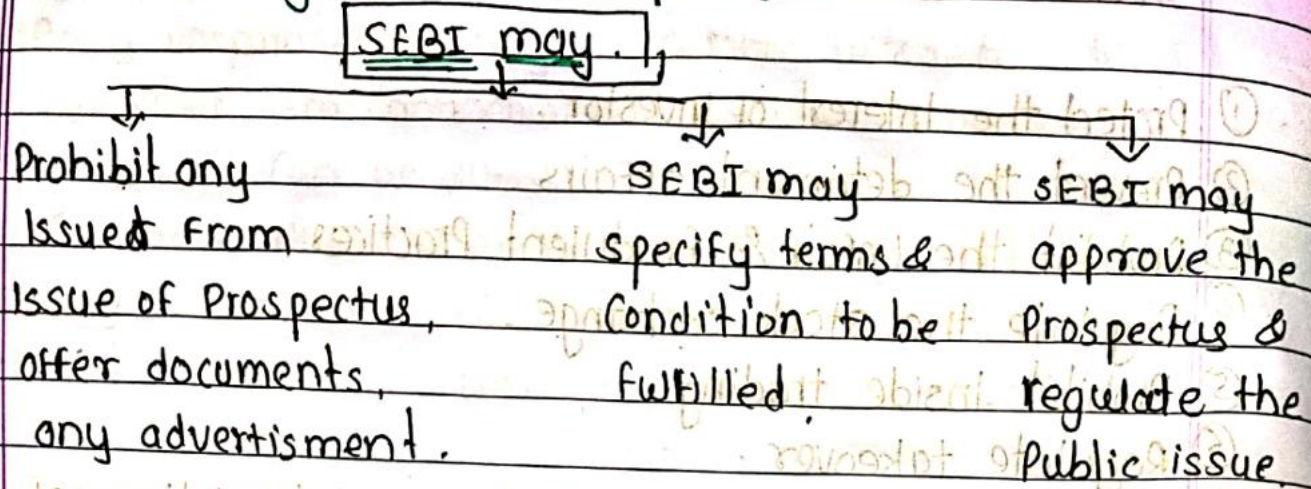 SEBI may.
Prohibit any
Issued from
Issue of Prospectus,
offer documents,
any advertisment.
SEBI may
specify terms &
Condition to be
fulfilled.
SEBI may
approve the
Prospectus &
regulate the
Public issue